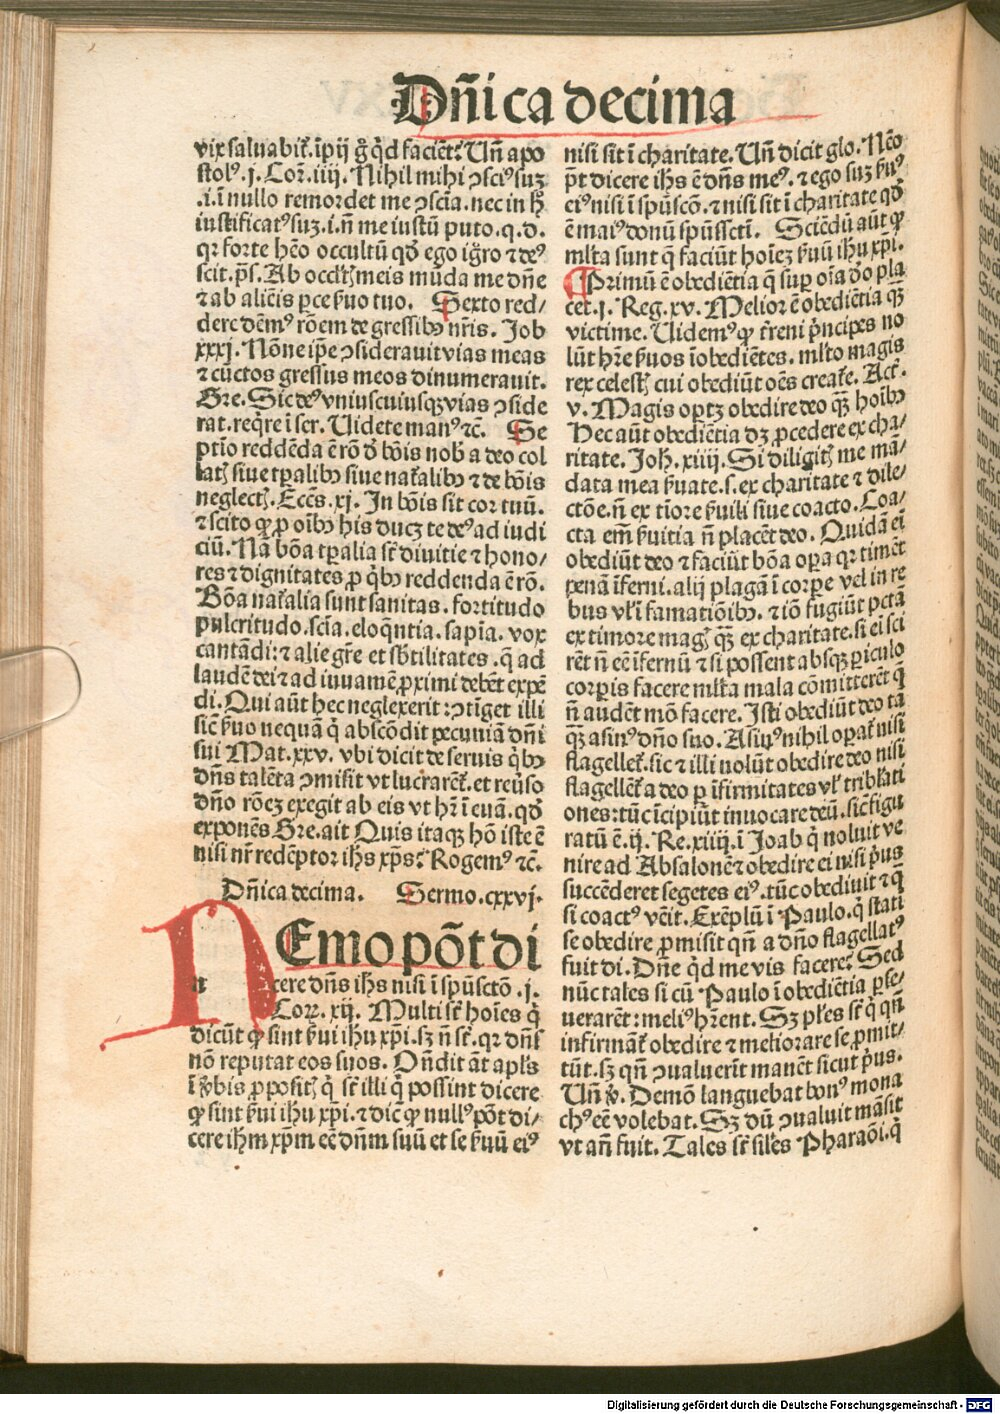 Dñica decima
vix saluabit̃. ĩpij g̊ q̇d faciẽt: Uñ apo
stolꝰ. j. Cor̃. iiij. Nihil mihi ↄsciꝰ suꝫ
.i. ĩ nullo remordet me ↄscia. nec in h̊
iustificatꝰ suꝫ .i. ñ me iustũ puto. q. d.
qꝛ forte hẽo occultũ qd̾ ego ig̊ro ⁊ deꝰ
scit. p̃s. Ab occl̃tꝭ meis mũda me dñe
⁊ ab aliẽis ꝑce ẜuo tuo. Sexto red/
dere dẽmꝰ rõem de gressibꝰ nr̃is. Job
xxxj. Nõne ip̃e ↄsiderauit vias meas
⁊ cũctos gressus meos dinumerauit.
Gre. Sic deꝰ vniuscuiusqꝫ vias ↄside
rat. req̃re ĩ scr. Uidete manꝰ ⁊c̃. Se
ptĩo reddẽda ẽ rõ d̾ bõis nob̃ a deo col
latꝭ siue tꝑalibꝰ siue nat̃alibꝰ ⁊ de bõis
neglectꝭ. Eccs̃. xj. In bõis sit cor tuũ.
⁊ scito ꝙ ꝓ oĩbꝰ his ducꝫ te deꝰ ad iudi
ciũ. Nã bõa tꝑalia st̃ diuitie ⁊ hono/
res ⁊ dignitates ꝓ q̇bꝰ reddenda ẽ rõ.
Bõa nat̃alia sunt sanitas. fortitudo
pulcritudo. scĩa. eloq̃ntia. sapĩa. vox
cantãdi: ⁊ alie gr̃e et sb̃tilitates. q̃ ad
laudẽ dei ⁊ ad iuuamẽ ꝓximi debẽt expẽ
di. Qui aũt hec neglexerit: ↄtĩget illi
sic̃ ẜuo nequã q̇ abscõdit pecuniã dñi
sui Mat. xxv. vbi dicit de seruis q̇bꝰ
dñs talẽta ↄmisit vt lucrarẽt̃. et reũso
dño rõeꝫ exegit ab eis vt hr̃ ĩ euã. qd̾
exponẽs Gre. ait Quis itaqꝫ hõ iste ẽ
nisi nr̃ redẽptor ih̃s xp̃s: Rogemꝰ ⁊c̃.
Dñica decima. Sermo. cxxvj.
NEmo põt di
cere dñs ih̃s nisi ĩ sp̃usctõ. j.
Corꝝ. xij. Multi st̃ hoĩes q̇
dicũt ꝙ sint ẜui ih̃u xp̃i. sꝫ ñ st̃. qꝛ dñs̃
nõ reputat eos suos. Oñdit ãt apl̃s
ĩ v̾bis ꝓpositꝭ q̇ st̃ illi q̇ possint dicere
ꝙ sint ẜui ih̃u xp̃i. ⁊ dic̃ ꝙ nullꝰ põt di/
cere ih̃m xp̃m eẽ dñm suũ et se ẜuũ eiꝰ
nisi sit ĩ charitate. Uñ dicit glo. Nẽo
p̃t dicere ih̃s ẽ dñs meꝰ. ⁊ ego suꝫ ẜuꝰ
eiꝰ nisi ĩ sp̃uscõ. ⁊ nisi sit ĩ charitate qd̾
ẽ maiꝰ donũ sp̃ussc̃ti. Sciẽdũ aũt ꝙ
ml̃ta sunt q̃ faciũt hoĩeꝫ ẜuũ ih̃u xp̃i.
¶Primũ ẽ obediẽtia q̃ suꝑ oĩa d̾o pla
cet. j. Reg. xv. Melior ẽ obediẽtia q̃ꝫ
victime. Uidemꝰ ꝙ t̃reni p̃ncipes no
lũt hr̃e ẜuos ĩobediẽtes. ml̃to magis
rex celestꝭ cui obediũt oẽs creat̃e. Act̃.
v. Magis oꝑtꝫ obedire deo q̃ꝫ hoĩbꝰ
Hec aũt obediẽtia dꝫ ꝓcedere ex cha/
ritate. Joh̃. xiiij. Si diligitꝭ me mã/
data mea ẜuate. s. ex charitate ⁊ dile/
ctõe. ñ ex tĩore ẜuili siue coacto. Coa/
cta em̃ ẜuitia ñ placẽt deo. Quidã eĩ
obediũt deo ⁊ faciũt bõa oꝑa qꝛ timẽt
penã ĩferni. alij plagã ĩ corꝑe vel in re
bus vl̃ ĩ famatiõibꝰ. ⁊ iõ fugiũt pctã
ex timore magꝭ q̃ꝫ ex charitate. si eĩ sci
rẽt ñ eẽ ĩfernũ ⁊ si possent absqꝫ ꝑiculo
corꝑis facere ml̃ta mala cõmitterẽt q̃
ñ audẽt mõ facere. Isti obediũt deo tã
q̃ꝫ asinꝰ dño suo. Asinꝰ nihil oꝑat̃ nisi
flagellet̃. sic ⁊ illi nolũt obedire deo nisi
flagellẽt̃ a deo ꝑ ĩfirmitates vl̃ tribl̃ati
ones: tũc ĩcipiũt inuocare deũ. sic̃ figu
ratũ ẽ. ij. Re. xiiij. ĩ Joab q̇ noluit ve
nire ad Absalonẽ ⁊ obedire ei nisi p̃us
succẽderet segetes eiꝰ. tũc obediuit ⁊ q̃
si coactꝰ vẽit. Exẽplũ ĩ Paulo. q̇ stati
se obedire ꝓmisit qñ a dño flagellatꝰ
fuit di. Dñe q̇d me vis facere: Sed
nũc tales si cũ Paulo ĩ obediẽtia ꝑse/
uerarẽt: meliꝰ hr̃ent. Sꝫ pl̃es st̃ q̇ qñ
infirmãt̃ obedire ⁊ meliorare se ꝓmit/
tũt. sꝫ qñ ↄualuerĩt manẽt sicut p̃us.
Uñ v̾. Demõ languebat bonꝰ mona
chꝰ eẽ volebat. Sꝫ dũ ↄualuit mãsit
vt añ fuit. Tales st̃ sil̃es Pharaõi. q̇
Digitalisierung gefördert durch die Deutsche Forschungsgemeinschaft - DFG